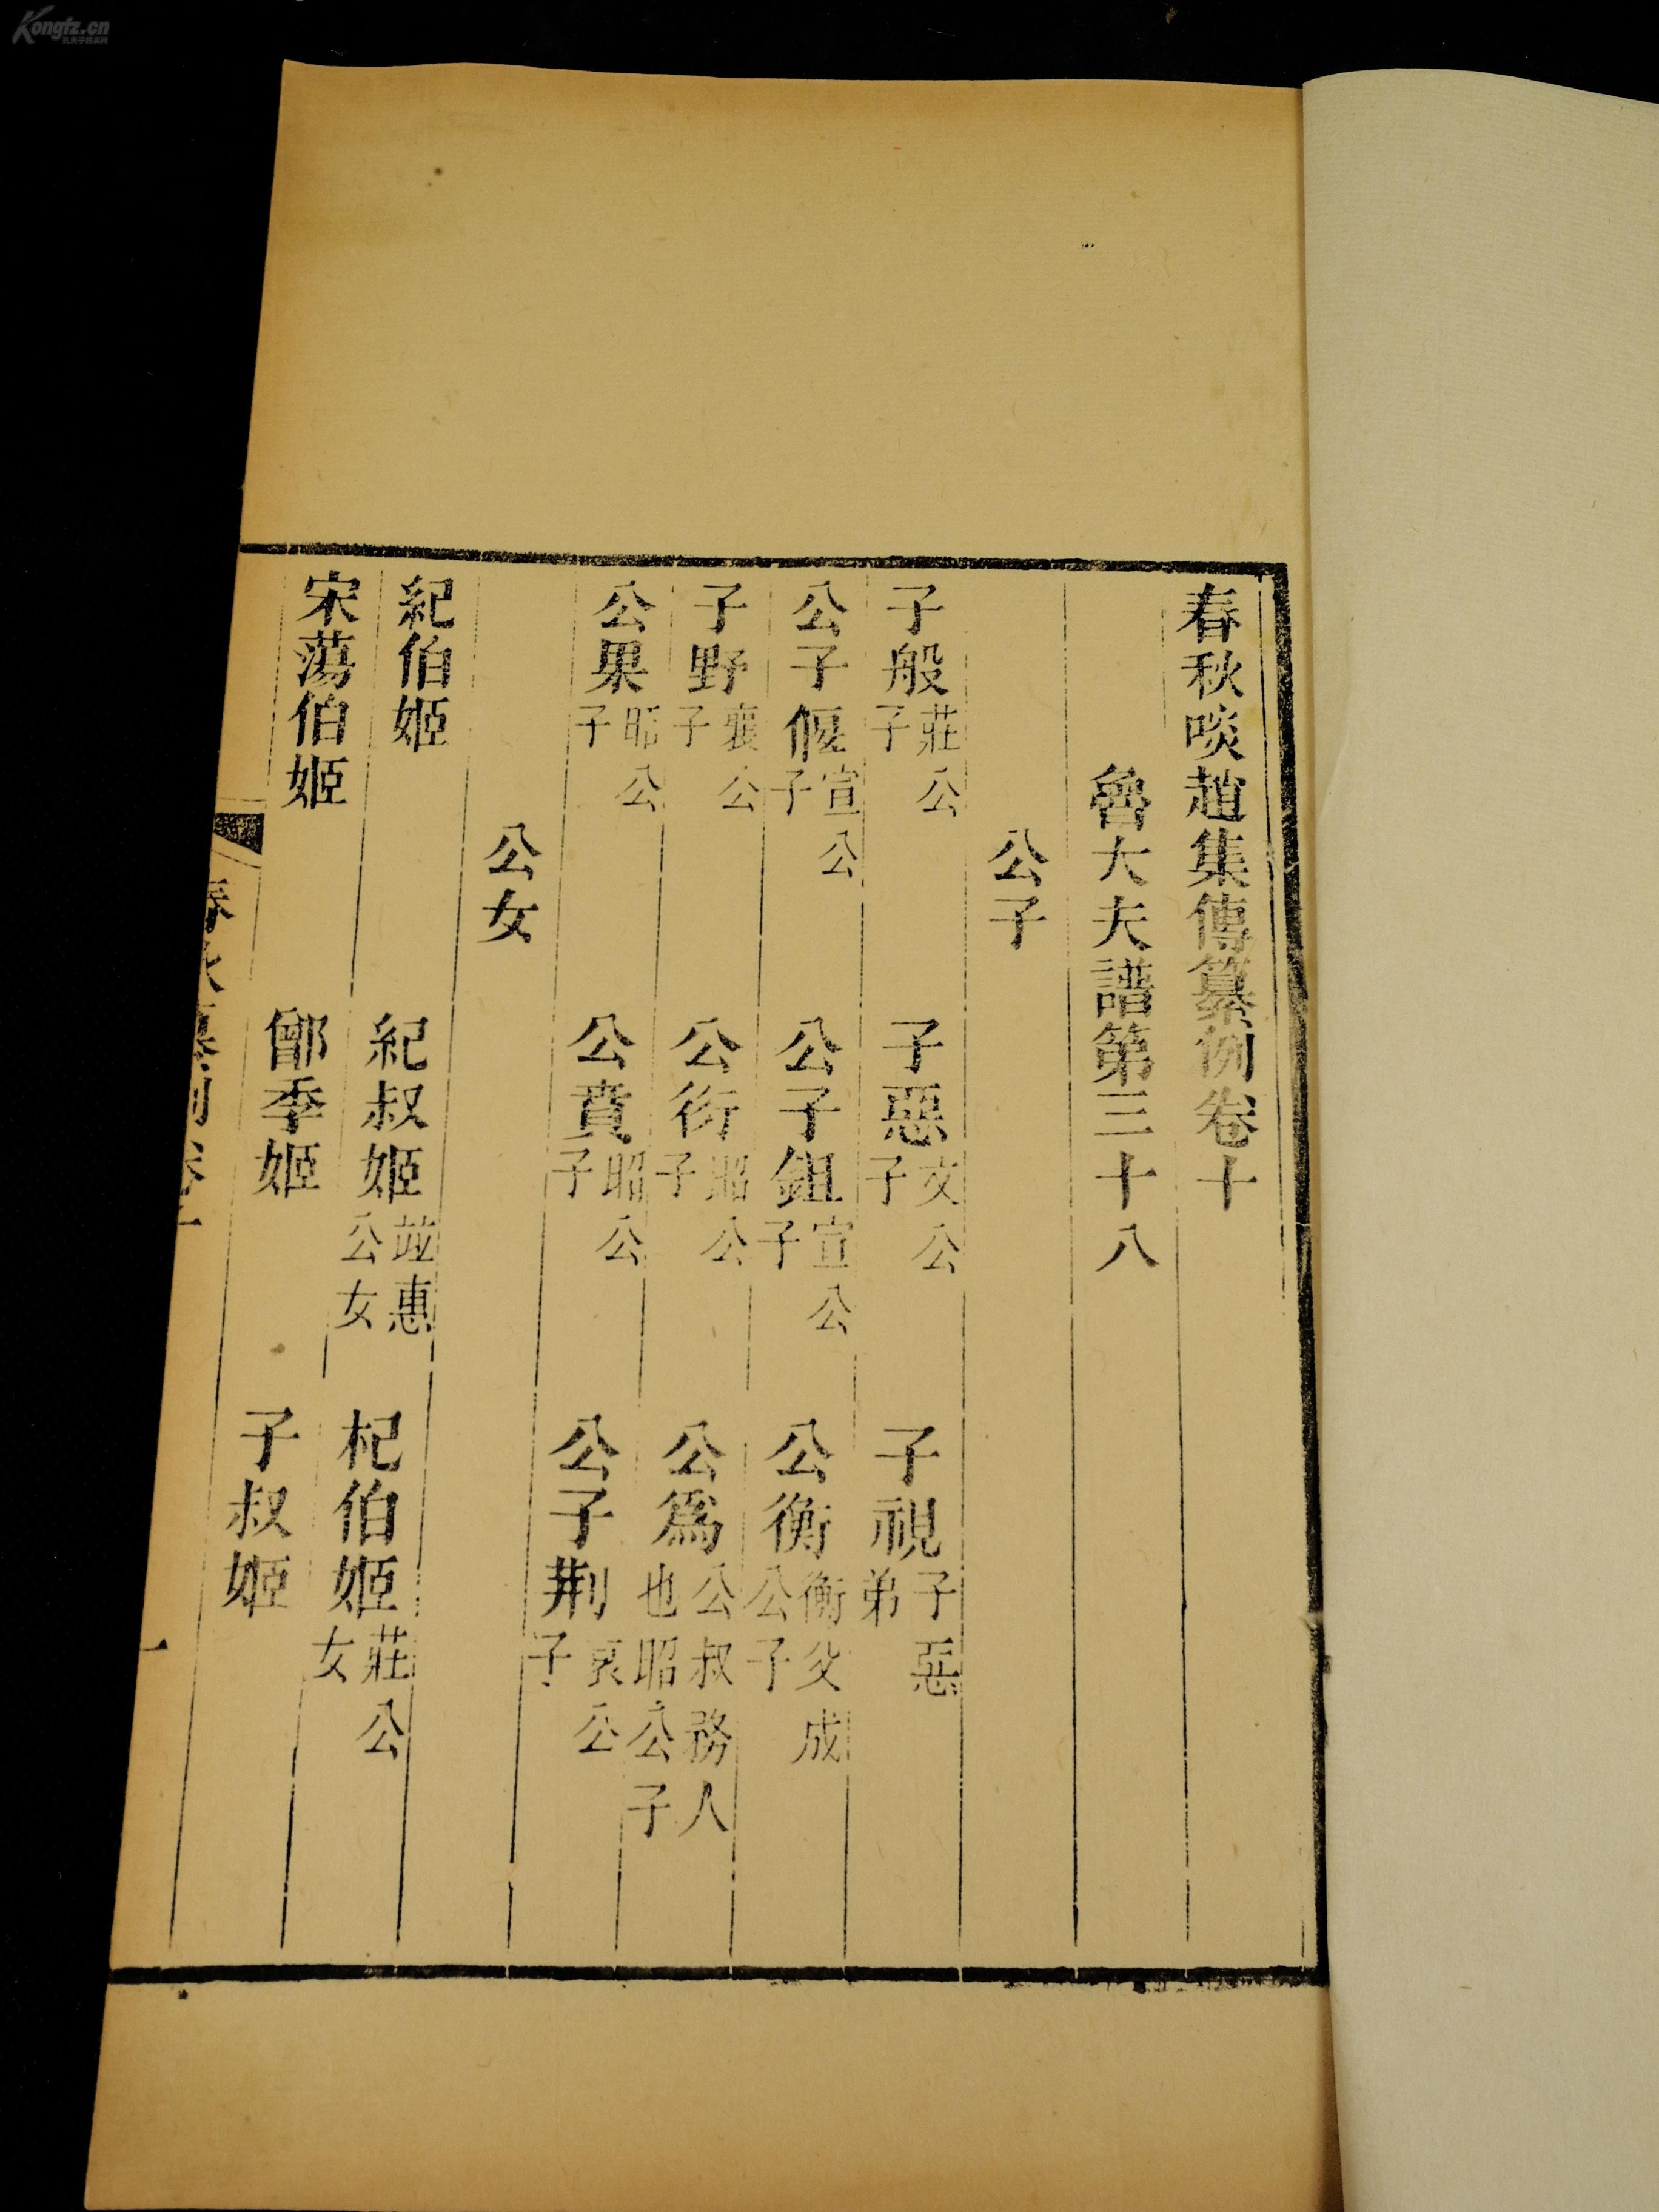 春秋啖趙集傳纂例卷十
魯大夫譜第三十八
公子
子般莊公子 子惡文公子 子視子惡弟
公子偃宣公子 公子鉏宣公子 公衡衡父成公子
子野襄公子 公衍昭公子 公爲公叔務人也昭公子
公果昭公子 公賁昭公子 公子荆哀公子
公女
紀伯姬 紀叔姬竝惠公女 杞伯姬莊公女
宋蕩伯姬 鄫季姬 子叔姬
一
Kongfz.cn